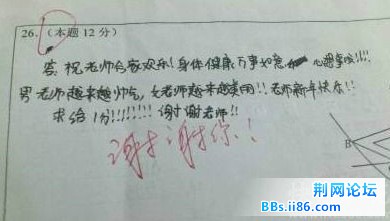 26.(本题12分)
答:祝老师合家欢乐!身体健康 万事如意 心想事成!!!!
男老师越来越帅气,女老师越来越美丽!!老师新年快乐!!
求给1分!!!!!!!! 谢谢老师!!
谢谢你!
B
荆网论坛
BBs.ii86.com